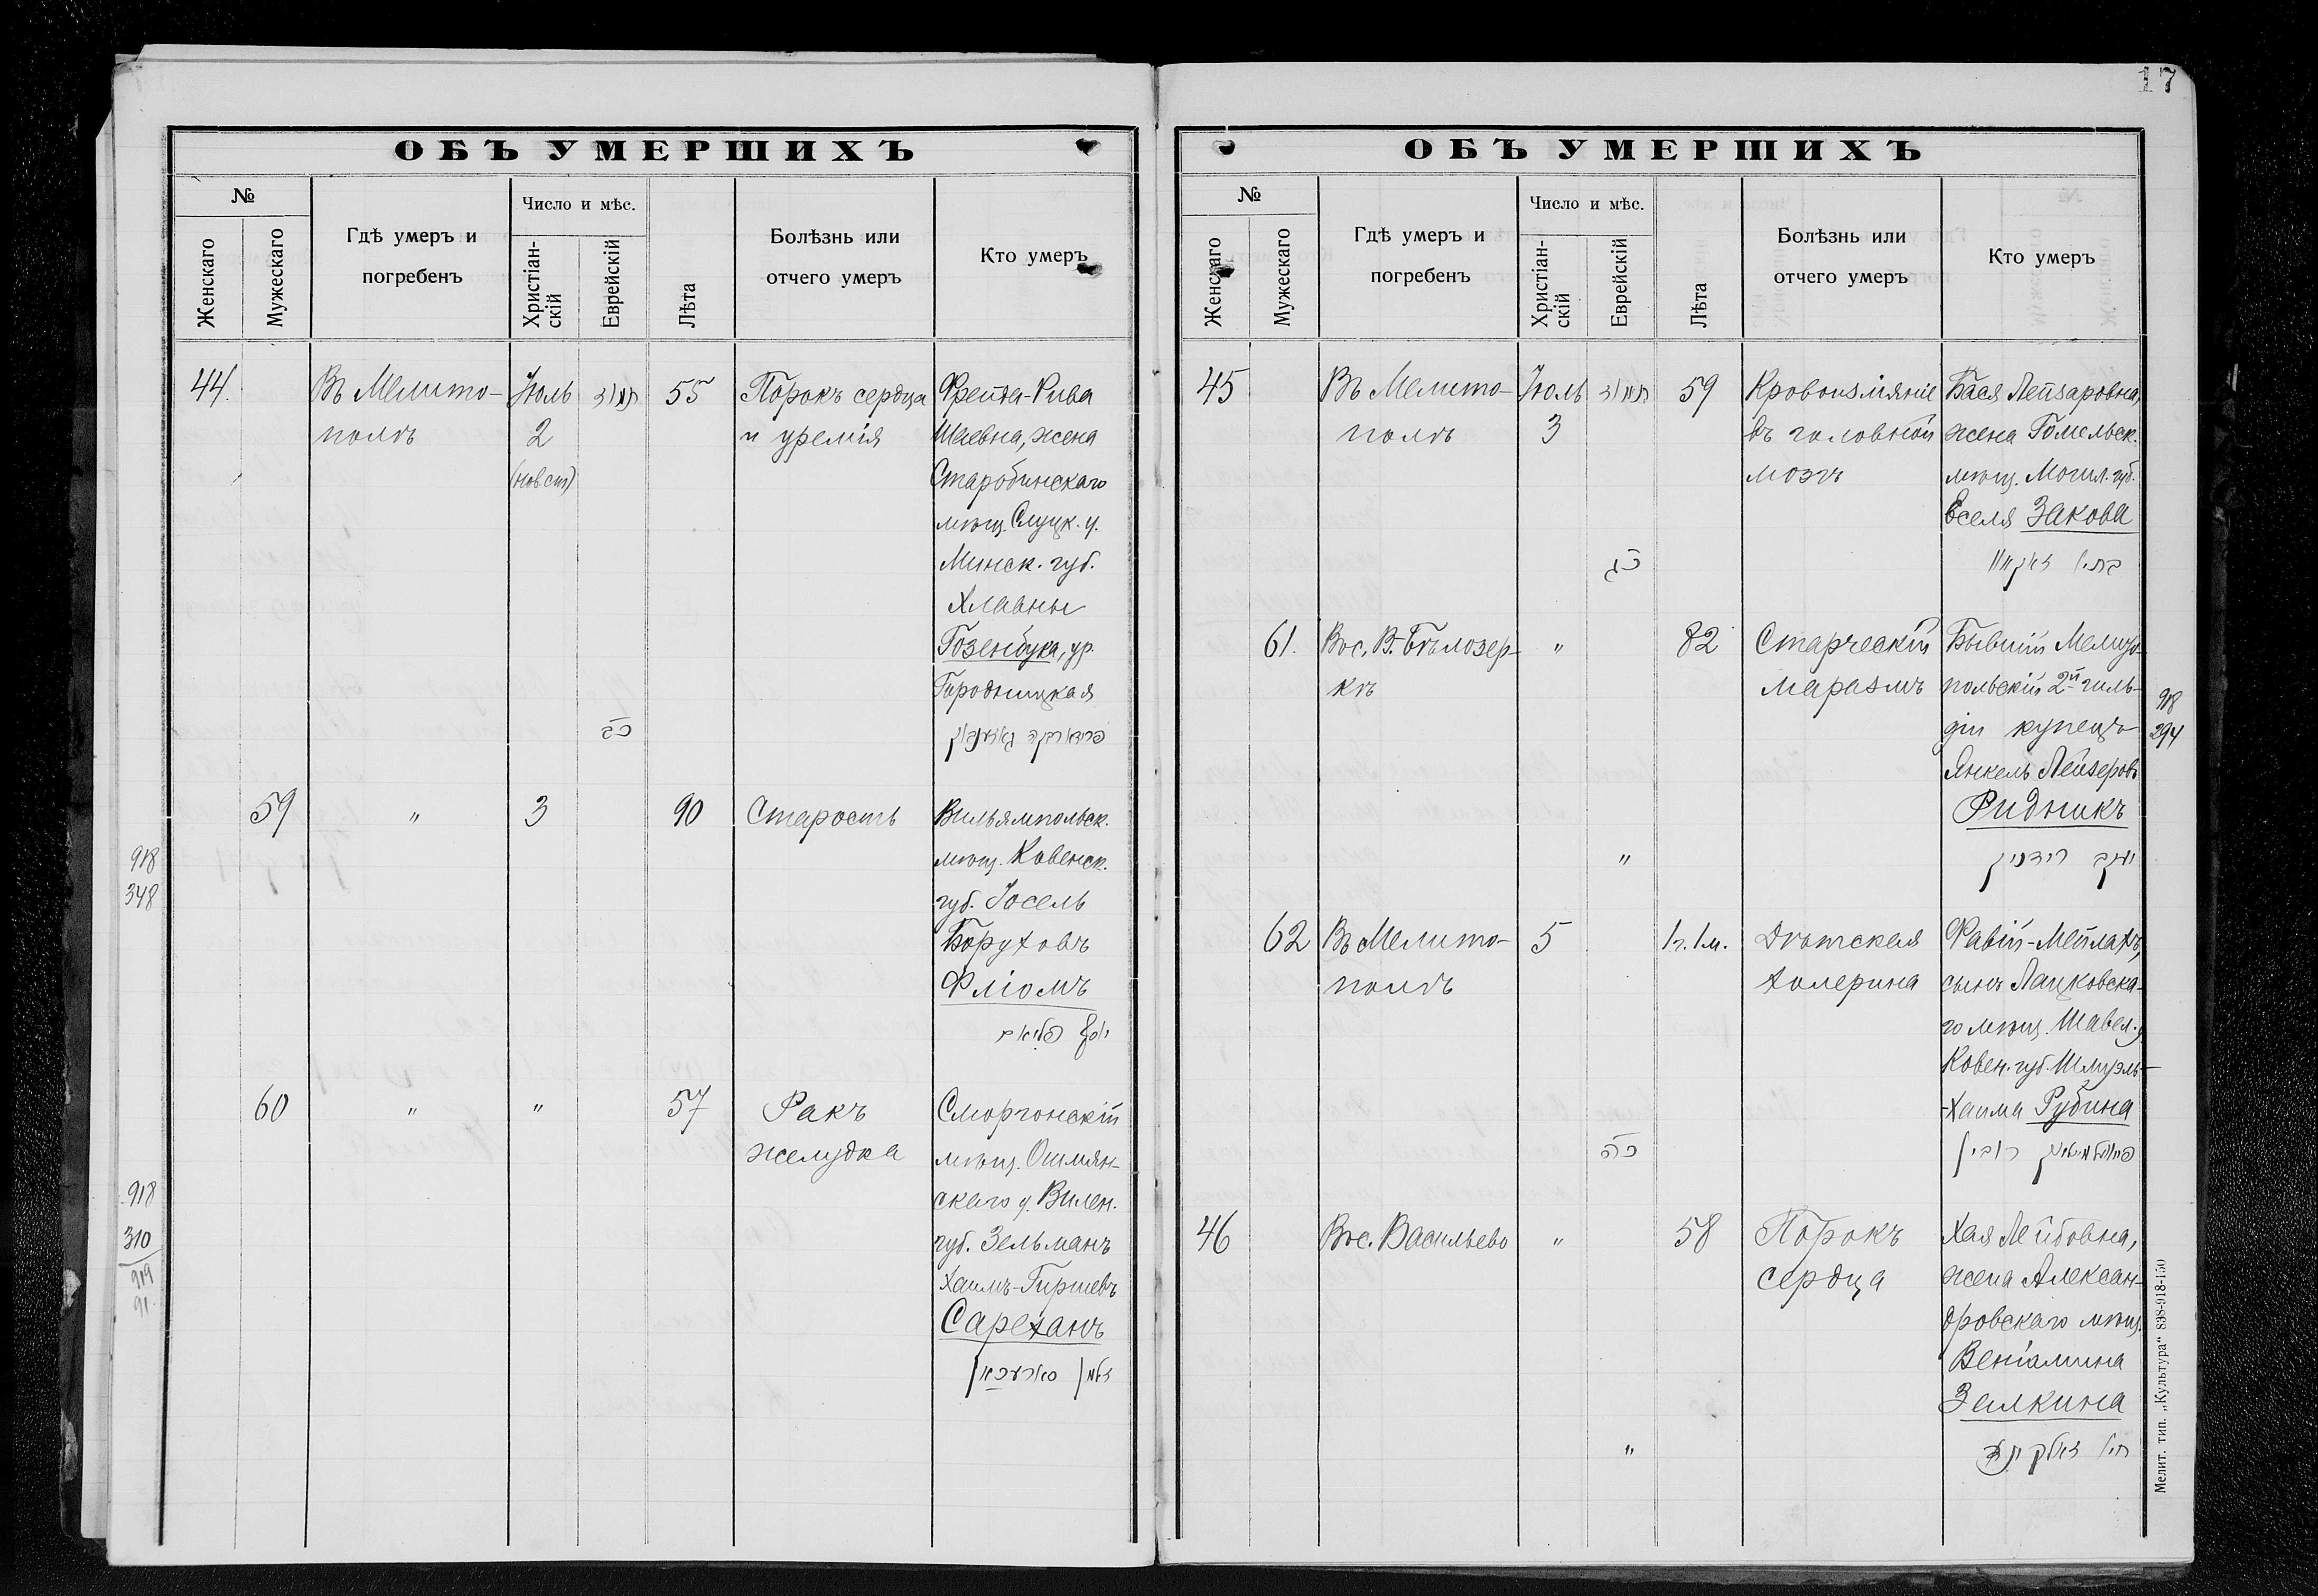 17
ОБЪ УМЕРШИХЪ
№
Женскаго
Мужескаго
Гдѣ умеръ и
погребенъ
Число и мѣс.
Христіан-
скій
Еврейскій
Лѣта
Болѣзнь или
отчего умеръ
Кто умеръ
44.
Въ Мелито-
полѣ
Іюль
2
(нов ст)
תמוז
55
Порокъ сердца
и уремія
Фрейда-Рива
Шаевна, жена
Старобинскаго
мѣщ. Слуцк. у.
Минск. губ.
Хлавны
Гозенбука, ур.
Городницкая
כב
59
"
3
90
Старость
Вильямпольск.
мѣщ. Ковенск.
губ. Іосель
Боруховъ
Фліомъ
918
348
60
"
"
57
Ракъ
желудка
Сморгонскій
мѣщ. Ошмян-
скаго у. Вилен.
губ. Зельманъ
Хаимъ-Гиршевъ
Сареханъ
918
310
919
91
ОБЪ УМЕРШИХЪ
№
Женскаго
Мужескаго
Гдѣ умеръ и
погребенъ
Число и мѣс.
Христіан-
скій
Еврейскій
Лѣта
Болѣзнь или
отчего умеръ
Кто умеръ
45
Въ Мелито-
полѣ
Іюль
3
תמוז
59
Кровоизліяніе
въ головной
мозгъ
Бася Лейзаровна,
жена Гомельск.
мѣщ. Могил. губ.
Еселя Закова
כג
61.
Въ с. В.-Бѣлозер-
кѣ
"
82
Старческій
маразмъ
Бывшій Мелито-
польскій 2й гиль-
діи купецъ
Янкель Лейзеровъ
Ридникъ
"
יעקב רידניק
918
294
62
Въ Мелито-
полѣ
5
1 г. 1 м.
Дѣтская
холерина
Фавій-Мейлахъ,
сынъ Лацковска-
го мѣщ. Шавел. у.
Ковен. губ. Шмуэль-
-Хаима Рубина
כה
רובין
46
Въ с. Васильево
"
58
Порокъ
сердца
Хая Лейбовна,
жена Алексан-
дровскаго мѣщ.
Веніамина
Зелкина
"
Мелит. тип. „Культура“ 898-918-150